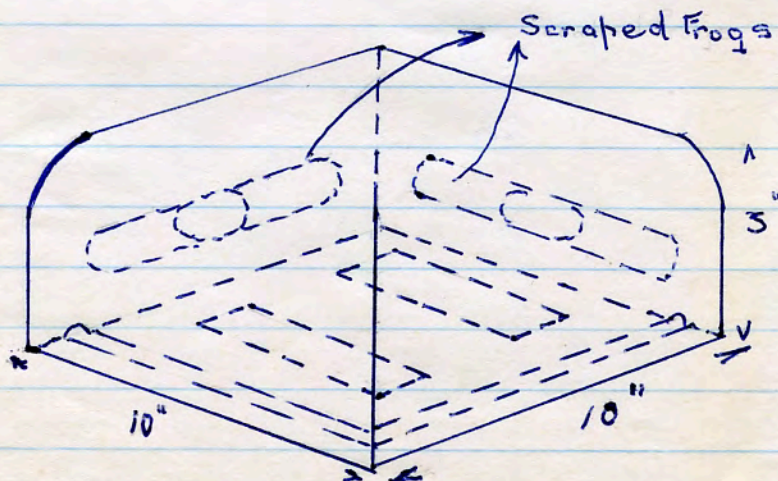 Scraped Frogs
5"
10"
10"